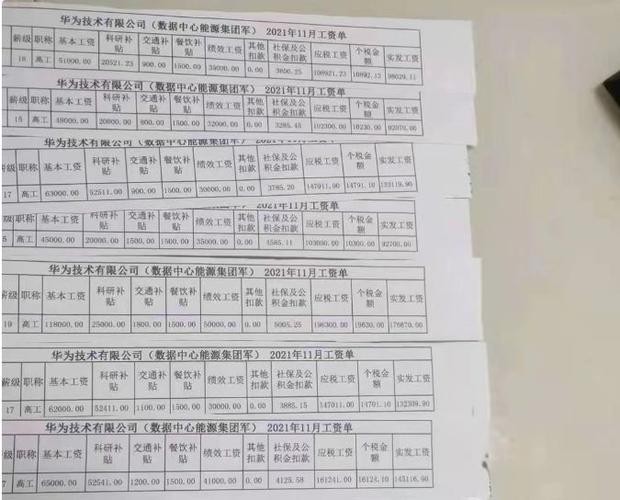 华为技术有限公司（数据中心能源集团军）2021年11月工资单
薪级 职称 基本工资 科研补贴 交通补贴 餐饮补贴 绩效工资 其他扣款 社保及公积金扣款 应税工资 个税金额 实发工资
16 高工 51000.00 20521.23 900.00 1500.00 35000.00 0.00 108921.23 10892.13 98029.11
华为技术有限公司（数据中心能源集团军）2021年11月工资单
薪级 职称 基本工资 科研补贴 交通补贴 餐饮补贴 绩效工资 其他扣款 社保及公积金扣款 应税工资 个税金额 实发工资
15 高工 48000.00 20000.00 800.00 1500.00 32000.00 0.00 3285.45 102300.00 10230.00 92070.00
薪级 职称 基本工资 科研补贴 交通补贴 餐饮补贴 绩效工资 其他扣款 社保及公积金扣款 应税工资 个税金额 实发工资
17 高工 63000.00 52511.00 900.00 1500.00 30000.00 0.00 3785.20 147911.00 14791.10 133119.90
级 职称 基本工资 科研补贴 交通补贴 餐饮补贴 绩效工资 其他扣款 社保及公积金扣款 应税工资 个税金额 实发工资
5 高工 45000.00 20000.00 1500.00 1500.00 35000.00 0.00 4585.11 103000.00 10300.00 92700.00
华为技术有限公司（数据中心能源集团军）2021年11月工资单
薪级 职称 基本工资 科研补贴 交通补贴 餐饮补贴 绩效工资 其他扣款 社保及公积金扣款 应税工资 个税金额 实发工资
19 高工 118000.00 25000.00 1800.00 1500.00 50000.00 0.00 5005.25 196300.00 19630.00 176670.00
华为技术有限公司（数据中心能源集团军）2021年11月工资单
薪级 职称 基本工资 科研补贴 交通补贴 餐饮补贴 绩效工资 其他扣款 社保及公积金扣款 应税工资 个税金额 实发工资
17 高工 62000.00 52411.00 1100.00 1500.00 30000.00 0.00 3885.15 147011.00 14701.10 132309.90
华为技术有限公司（数据中心能源集团军）2021年11月工资单
级 职称 基本工资 科研补贴 交通补贴 餐饮补贴 绩效工资 其他扣款 社保及公积金扣款 应税工资 个税金额 实发工资
7 高工 65000.00 52541.00 1200.00 1500.00 41000.00 0.00 4125.58 161241.00 16124.10 145116.90